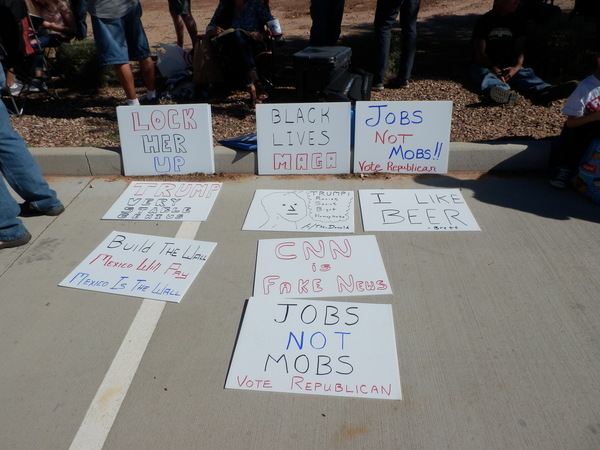 LOCK
HER
UP
BLACK
LIVES
MAGA
JOBS
NOT
MOBS!!
Vote Republican
TRUMP
VERY
STABLE
GENIUS
TRUMP:
Racist
Bigot
I LIKE
BEER
- Brett
BUILD THE WALL
MEXICO WILL PAY
MEXICO IS THE WALL
CNN
is
FAKE NEWS
JOBS
NOT
MOBS
VOTE REPUBLICAN